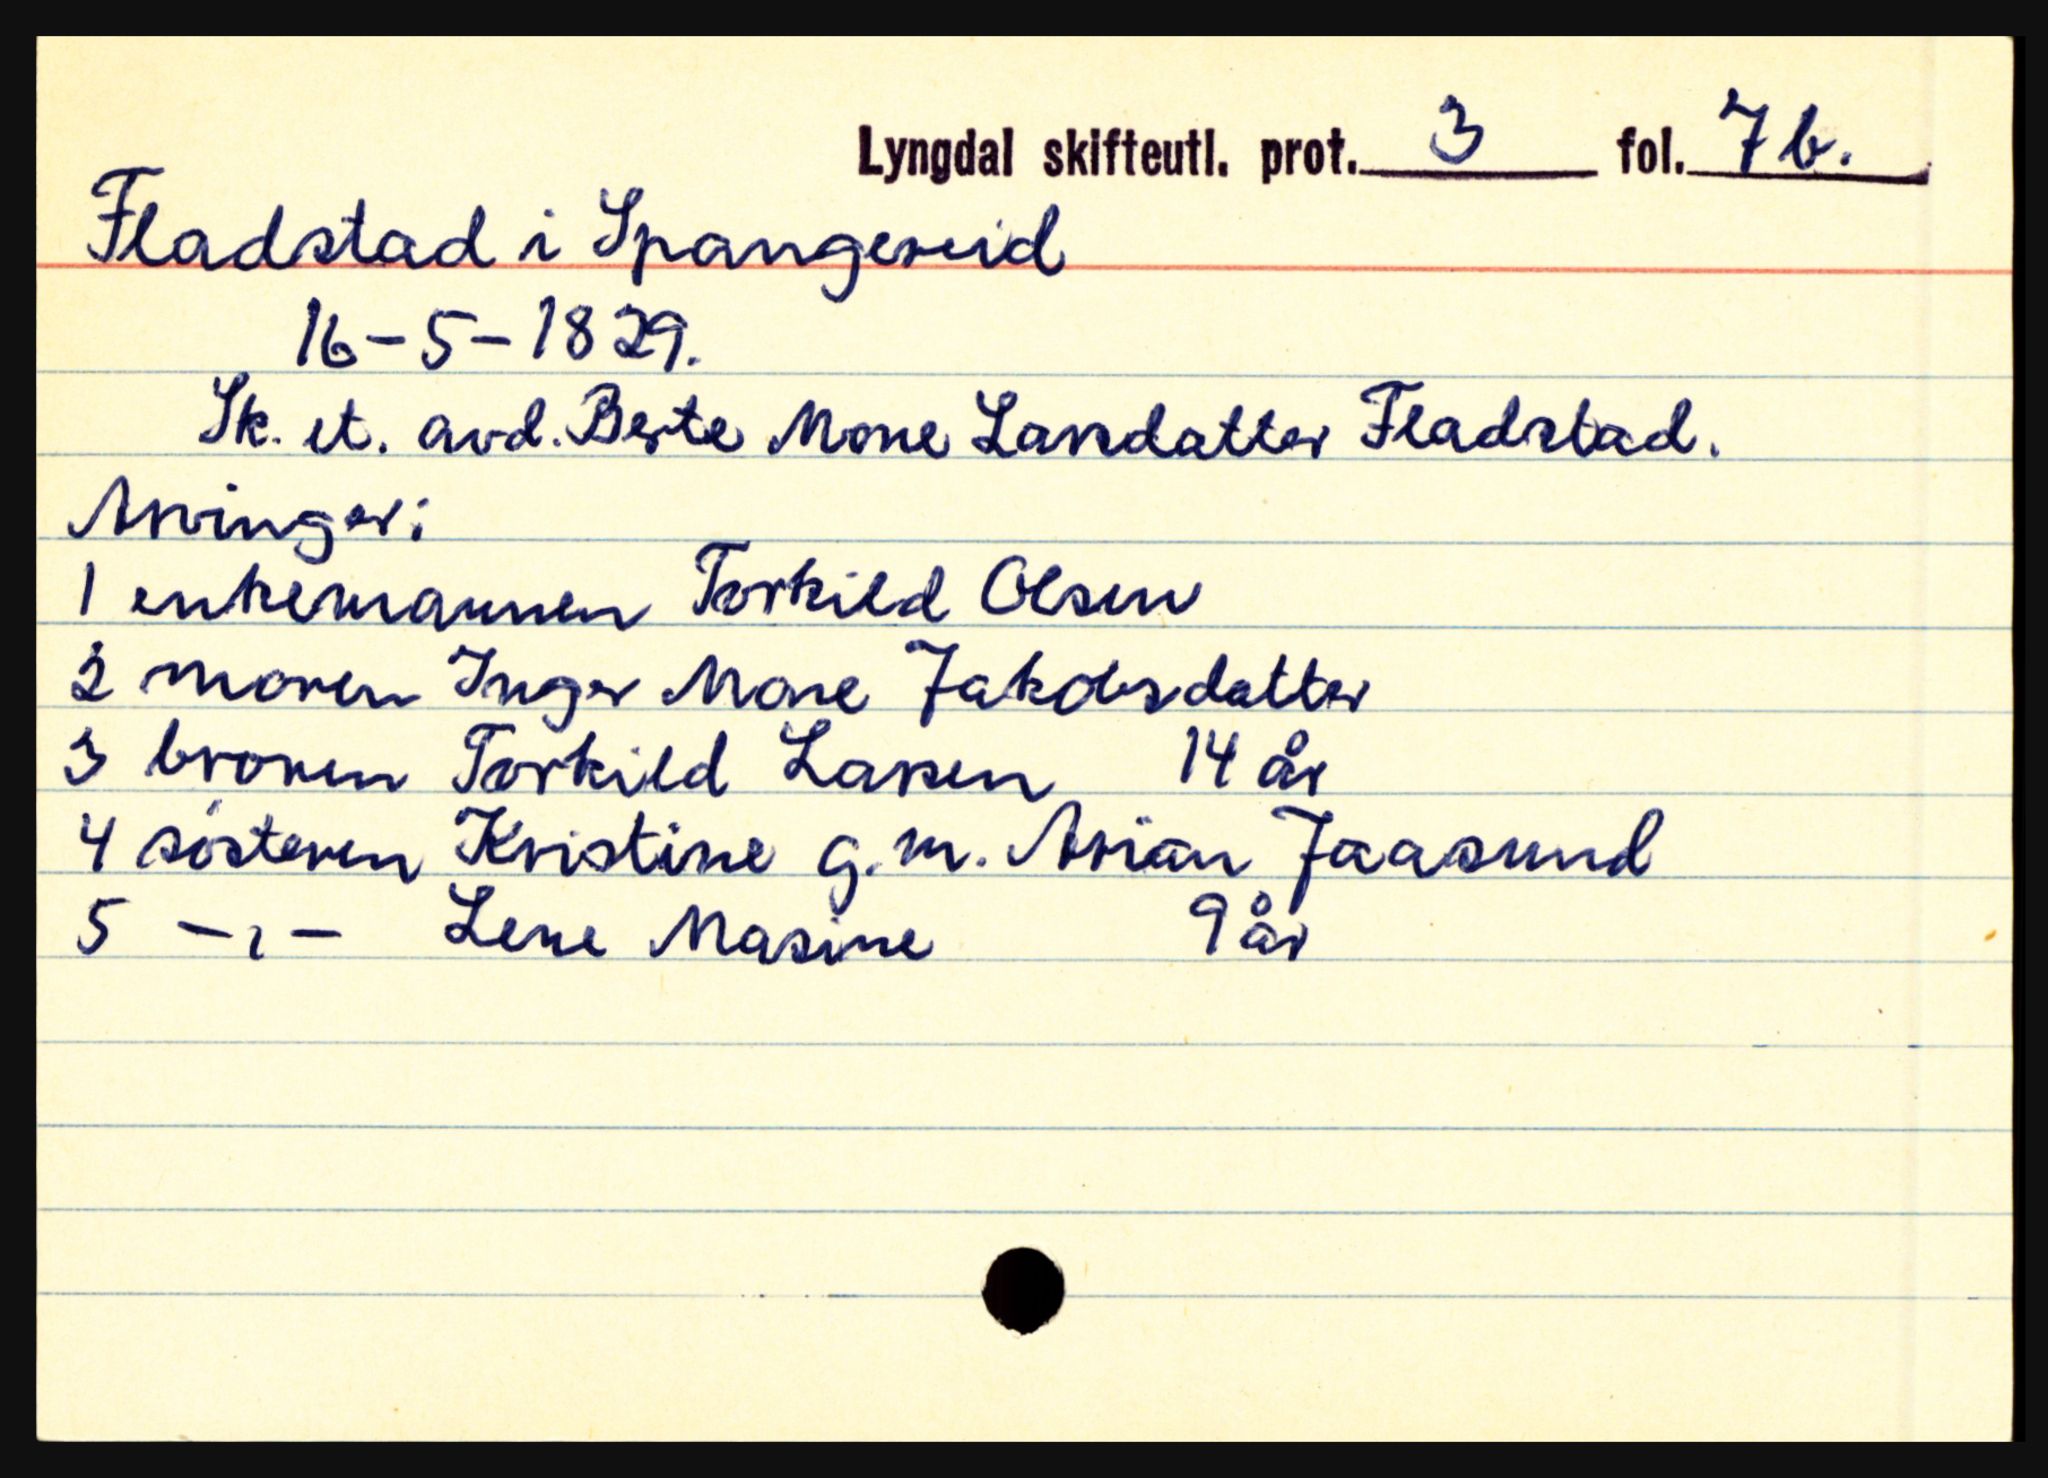 Lyngdal skifteutl. prot. 3 fol. 7b.
Fladstad i Spangereid
16-5-1829.
Sk. et. avd. Berte Mone Larsdatter Fladstad.
Arvinger:
1 enkemannen Torkild Olsen
2 moren Inger Mone Jakobsdatter
3 broren Torkild Larsen 14 år
4 søsteren Kristine g.m. Arian Jaasund
5 -,- Lene Masine 9 år